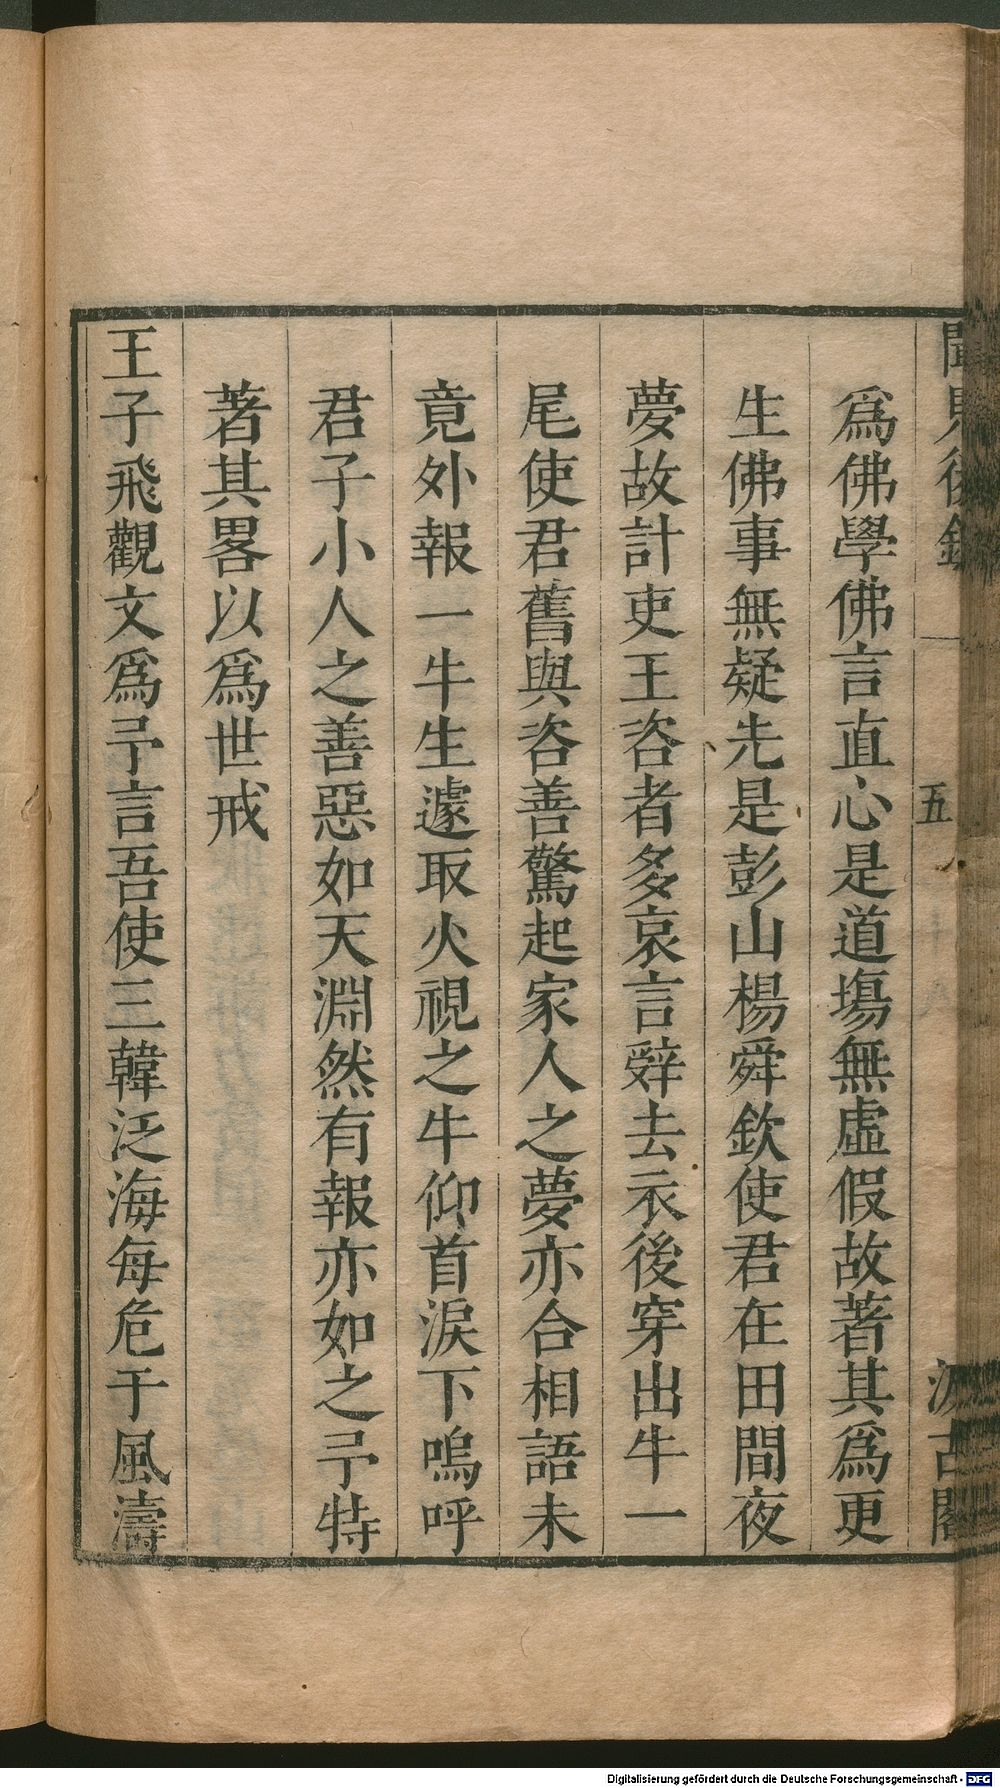 聞見後錄
五
汲古閣
爲佛學佛言直心是道塲無虛假故著其爲更
生佛事無疑先是彭山楊舜欽使君在田間夜
夢故計吏王咨者多哀言辤去衣後穿出牛一
尾使君舊與咨善驚起家人之夢亦合相語未
竟外報一牛生遽取火視之牛仰首淚下嗚呼
君子小人之善惡如天淵然有報亦如之予特
著其畧以爲世戒
王子飛觀文爲予言吾使三韓泛海每危于風濤
Digitalisierung gefördert durch die Deutsche Forschungsgemeinschaft - DFG